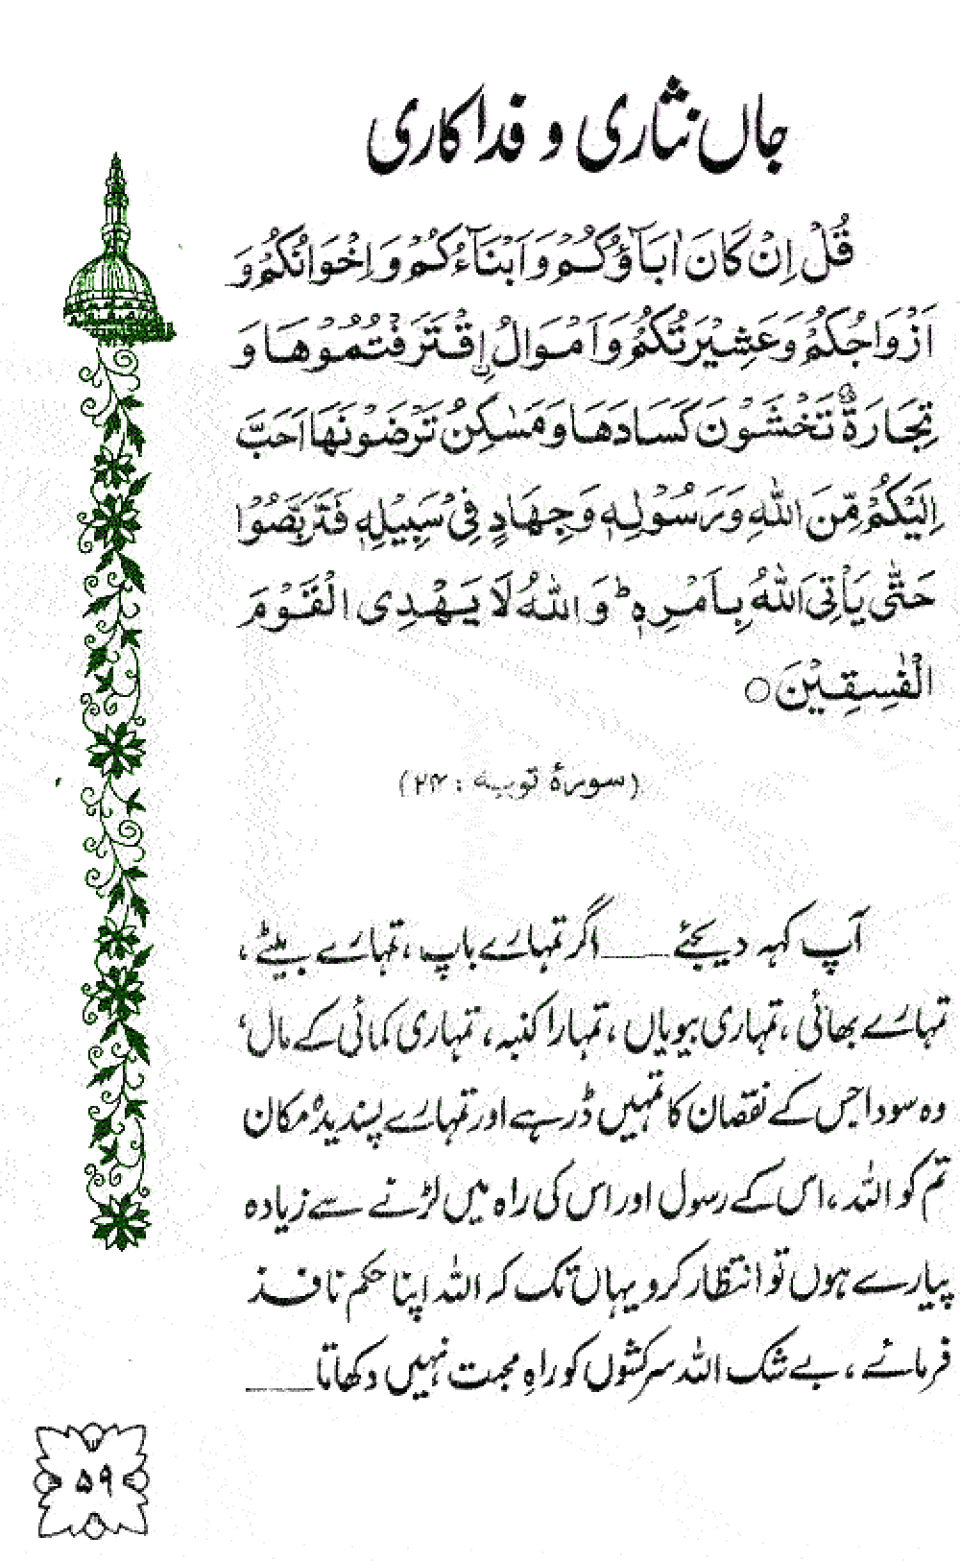 جاں نثاری و فداکاری
قُلْ اِنْ كَانَ اٰبَآؤُكُمْ وَاَبْنَآءُكُمْ وَاِخْوَانُكُمْ وَ
اَزْوَاجُكُمْ وَعَشِيْرَتُكُمْ وَاَمْوَالُ ۨاقْتَرَفْتُمُوْهَا وَ
تِجَارَةٌ تَخْشَوْنَ كَسَادَهَا وَمَسٰكِنُ تَرْضَوْنَهَا اَحَبَّ
اِلَيْكُمْ مِّنَ اللّٰهِ وَرَسُوْلِهٖ وَجِهَادٍ فِىْ سَبِيْلِهٖ فَتَرَبَّصُوْا
حَتّٰى يَاْتِىَ اللّٰهُ بِاَمْرِهٖ ؕ وَاللّٰهُ لَا يَهْدِى الْقَوْمَ
الْفٰسِقِيْنَ ○
(سورۂ توبہ : ۲۴)
آپ کہہ دیجئے ___ اگر تمہارے باپ، تمہارے بیٹے،
تمہارے بھائی، تمہاری بیویاں، تمہارا کنبہ، تمہاری کمائی کے مال،
وہ سودا جس کے نقصان کا تمہیں ڈر ہے اور تمہارے پسندیدہ مکان
تم کو اللہ، اس کے رسول اور اس کی راہ میں لڑنے سے زیادہ
پیارے ہوں تو انتظار کرو یہاں تک کہ اللہ اپنا حکم نافذ
فرمائے، بے شک اللہ سرکشوں کو راہِ محبت نہیں دکھاتا ___
۵۹